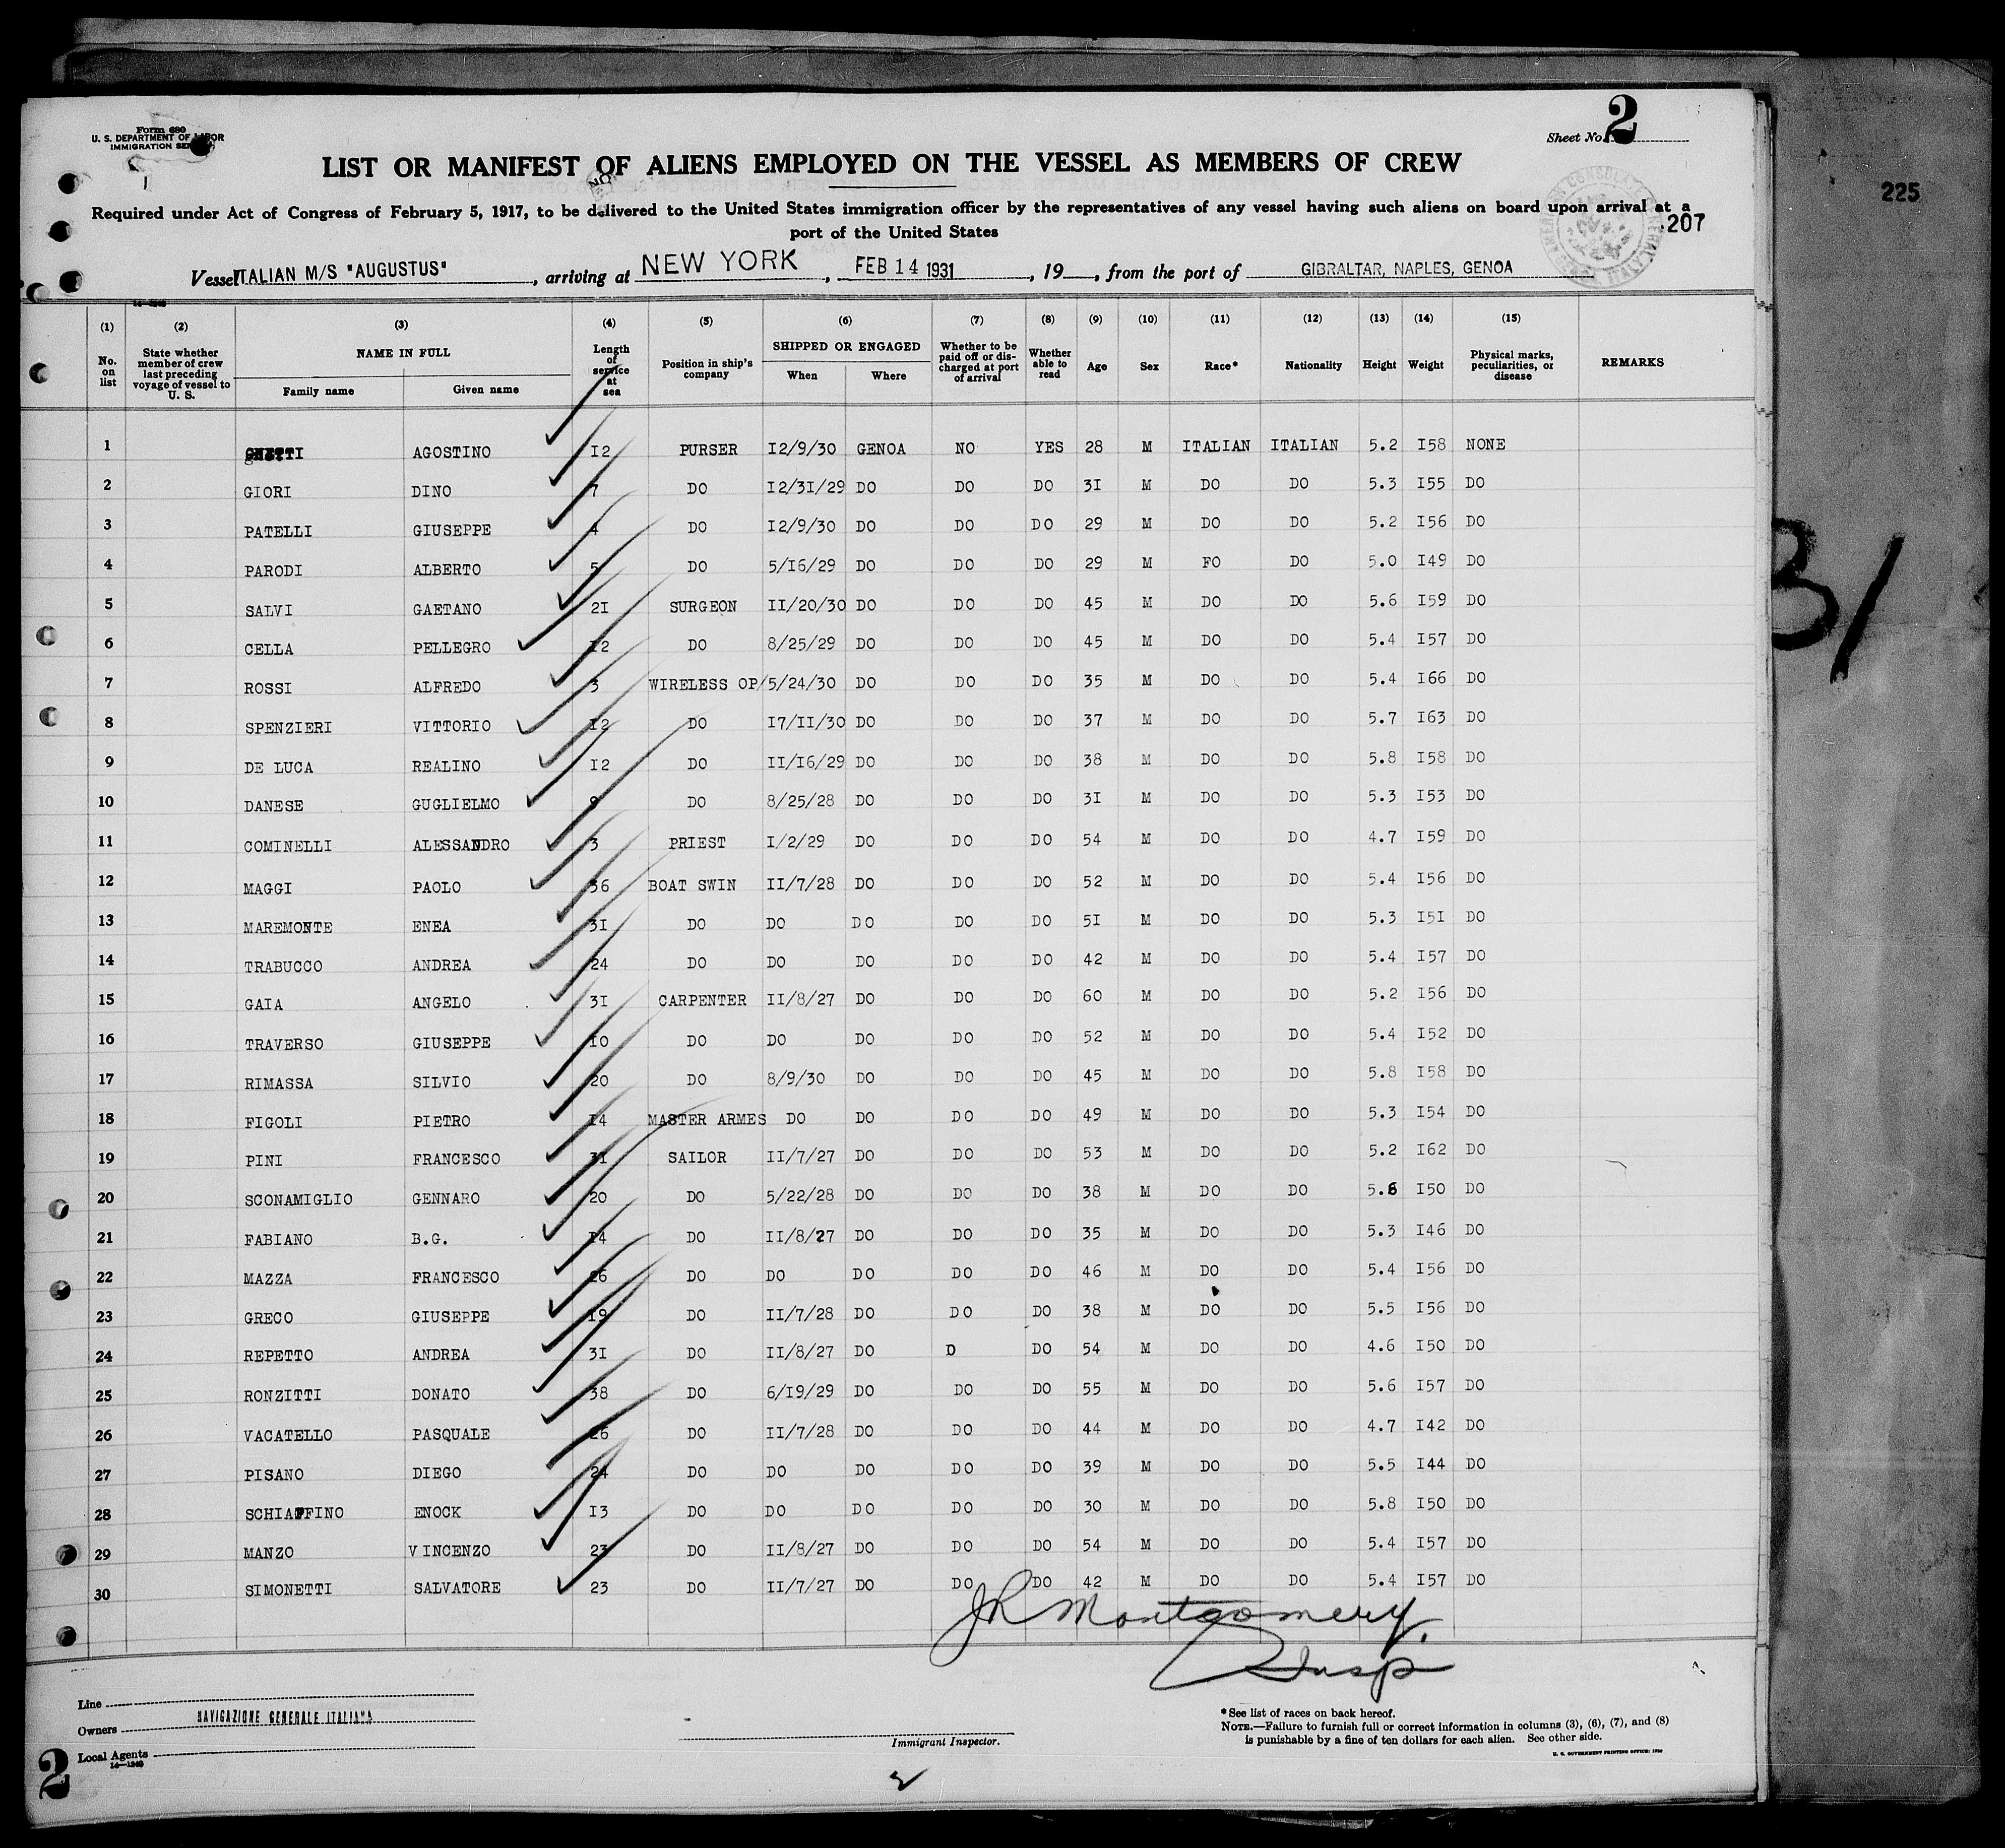 Form 680
U. S. DEPARTMENT OF LABOR
IMMIGRATION SERVICE
Sheet No. 2
LIST OR MANIFEST OF ALIENS EMPLOYED ON THE VESSEL AS MEMBERS OF CREW
225
Required under Act of Congress of February 5, 1917, to be delivered to the United States immigration officer by the representatives of any vessel having such aliens on board upon arrival at a
port of the United States
207
Vessel ITALIAN M/S "AUGUSTUS" , arriving at NEW YORK , FEB 14 1931 , 19 , from the port of GIBRALTAR, NAPLES, GENOA
(1) No. on list (2) State whether member of crew last preceding voyage of vessel to U. S. (3) NAME IN FULL Family name Given name (4) Length of service at sea (5) Position in ship's company (6) SHIPPED OR ENGAGED When Where (7) Whether to be paid off or discharged at port of arrival (8) Whether able to read (9) Age (10) Sex (11) Race* (12) Nationality (13) Height (14) Weight (15) Physical marks, peculiarities, or disease REMARKS
1 AGOSTINO I2 PURSER I2/9/30 GENOA NO YES 28 M ITALIAN ITALIAN 5.2 I58 NONE
2 GIORI DINO 7 DO I2/3I/29 DO DO DO 3I M DO DO 5.3 I55 DO
3 PATELLI GIUSEPPE 4 DO I2/9/30 DO DO DO 29 M DO DO 5.2 I56 DO
4 PARODI ALBERTO 5 DO 5/I6/29 DO DO DO 29 M FO DO 5.0 I49 DO
5 SALVI GAETANO 2I SURGEON II/20/30 DO DO DO 45 M DO DO 5.6 I59 DO
6 CELLA PELLEGRO I2 DO 8/25/29 DO DO DO 45 M DO DO 5.4 I57 DO
7 ROSSI ALFREDO 3 WIRELESS OP/ 5/24/30 DO DO DO 35 M DO DO 5.4 I66 DO
8 SPENZIERI VITTORIO I2 DO I7/II/30 DO DO DO 37 M DO DO 5.7 I63 DO
9 DE LUCA REALINO I2 DO II/I6/29 DO DO DO 38 M DO DO 5.8 I58 DO
10 DANESE GUGLIELMO 9 DO 8/25/28 DO DO DO 3I M DO DO 5.3 I53 DO
11 COMINELLI ALESSANDRO 3 PRIEST I/2/29 DO DO DO 54 M DO DO 4.7 I59 DO
12 MAGGI PAOLO 36 BOAT SWIN II/7/28 DO DO DO 52 M DO DO 5.4 I56 DO
13 MAREMONTE ENEA 3I DO DO DO DO DO 5I M DO DO 5.3 I5I DO
14 TRABUCCO ANDREA 24 DO DO DO DO DO 42 M DO DO 5.4 I57 DO
15 GAIA ANGELO 3I CARPENTER II/8/27 DO DO DO 60 M DO DO 5.2 I56 DO
16 TRAVERSO GIUSEPPE I0 DO DO DO DO DO 52 M DO DO 5.4 I52 DO
17 RIMASSA SILVIO 20 DO 8/9/30 DO DO DO 45 M DO DO 5.8 I58 DO
18 FIGOLI PIETRO I4 MASTER ARMES DO DO DO DO 49 M DO DO 5.3 I54 DO
19 PINI FRANCESCO 3I SAILOR II/7/27 DO DO DO 53 M DO DO 5.2 I62 DO
20 SCONAMIGLIO GENNARO 20 DO 5/22/28 DO DO DO 38 M DO DO 5.6 I50 DO
21 FABIANO B.G. I4 DO II/8/27 DO DO DO 35 M DO DO 5.3 I46 DO
22 MAZZA FRANCESCO 26 DO DO DO DO DO 46 M DO DO 5.4 I56 DO
23 GRECO GIUSEPPE I9 DO II/7/28 DO DO DO 38 M DO DO 5.5 I56 DO
24 REPETTO ANDREA 3I DO II/8/27 DO D DO 54 M DO DO 4.6 I50 DO
25 RONZITTI DONATO 38 DO 6/I9/29 DO DO DO 55 M DO DO 5.6 I57 DO
26 VACATELLO PASQUALE 26 DO II/7/28 DO DO DO 44 M DO DO 4.7 I42 DO
27 PISANO DIEGO 24 DO DO DO DO DO 39 M DO DO 5.5 I44 DO
28 SCHIAFFINO ENOCK I3 DO DO DO DO DO 30 M DO DO 5.8 I50 DO
29 MANZO VINCENZO 23 DO II/8/27 DO DO DO 54 M DO DO 5.4 I57 DO
30 SIMONETTI SALVATORE 23 DO II/7/27 DO DO DO 42 M DO DO 5.4 I57 DO
JR Montgomery,
Insp
Line
Owners NAVIGAZIONE GENERALE ITALIANA
Local Agents
14—1240
Immigrant Inspector.
*See list of races on back hereof.
NOTE.—Failure to furnish full or correct information in columns (3), (6), (7), and (8)
is punishable by a fine of ten dollars for each alien. See other side.
U. S. GOVERNMENT PRINTING OFFICE: 1930
2
2
31